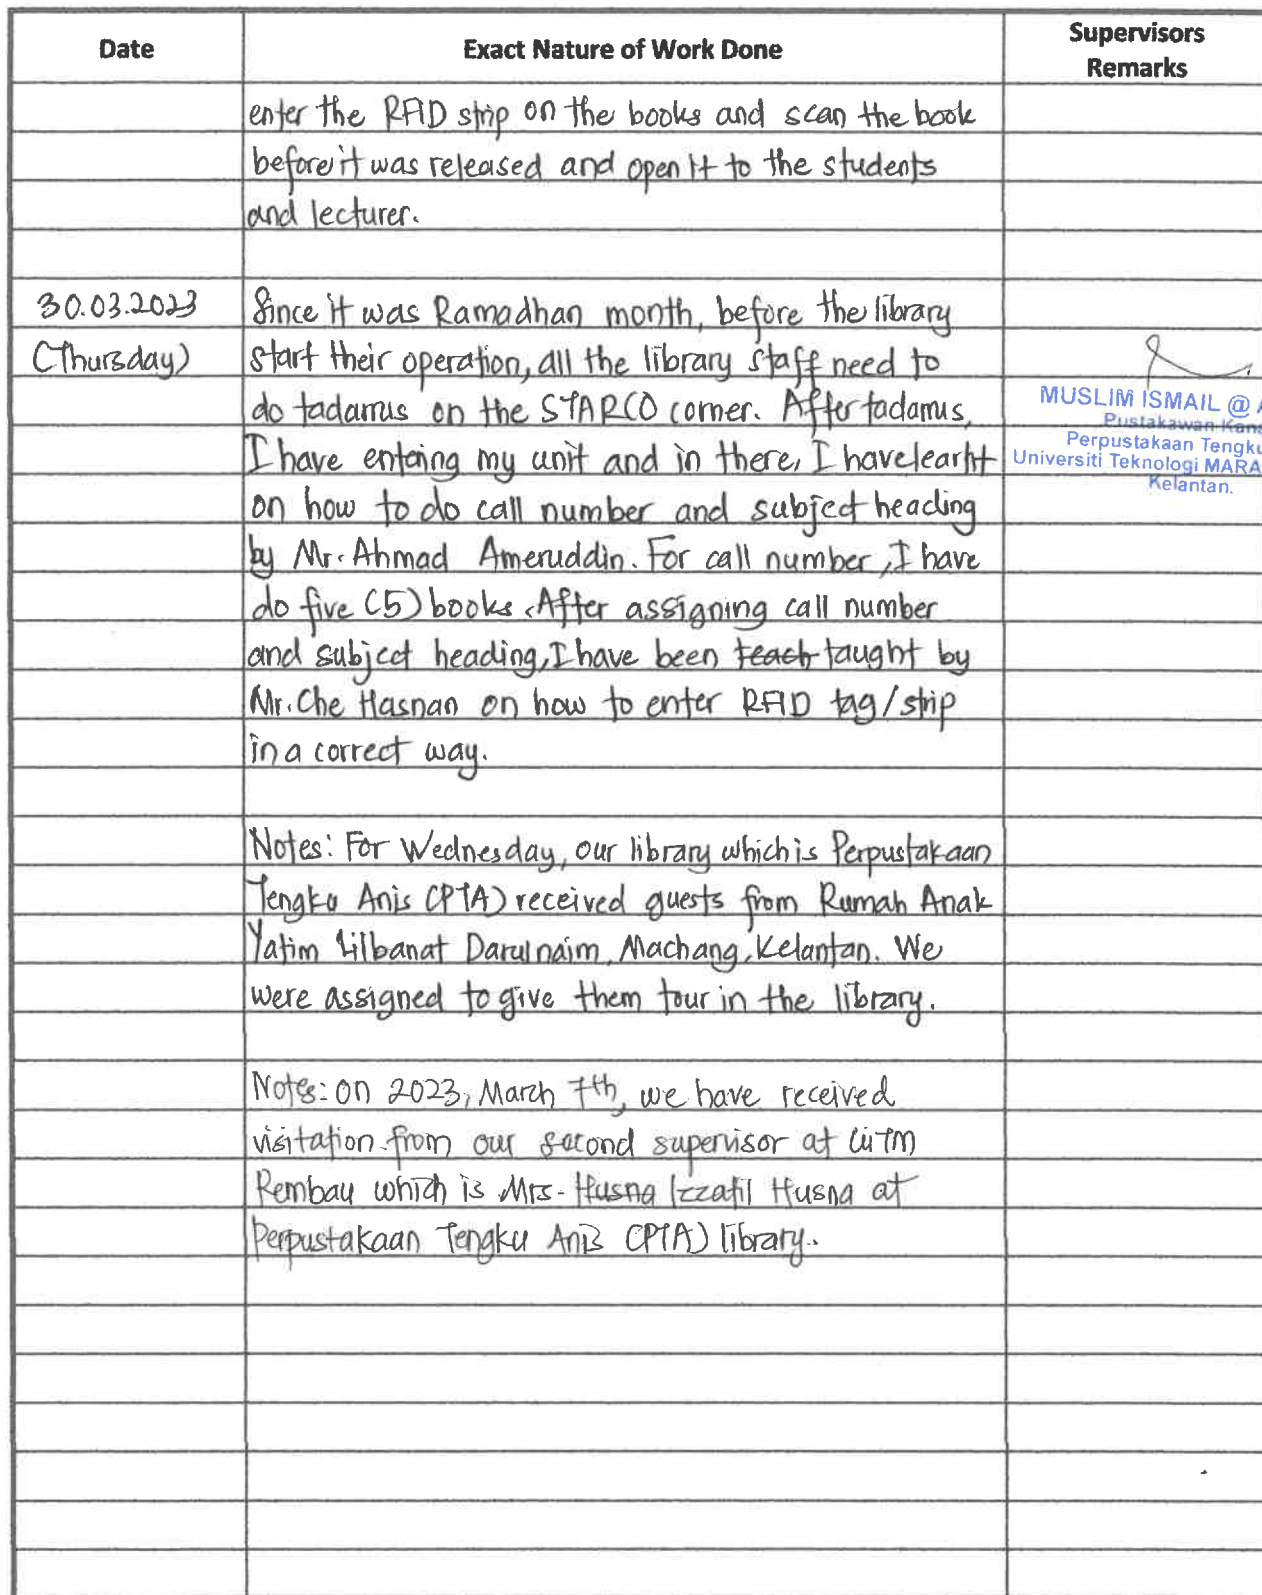 Date
Exact Nature of Work Done
Supervisors
Remarks
enter the RFID strip on the books and scan the book
before it was released and open it to the students
and lecturer.
30.03.2023
(Thursday)
Since it was Ramadhan month, before the library
start their operation, all the library staff need to
do tadarrus on the STARCO corner. After tadarrus,
I have entering my unit and in there, I have learnt
on how to do call number and subject heading
by Mr. Ahmad Ameruddin. For call number, I have
do five (5) books. After assigning call number
and subject heading, I have been teach taught by
Mr. Che Hasnan on how to enter RFID tag/strip
in a correct way.
MUSLIM ISMAIL @ A
Pustakawan Kana
Perpustakaan Tengku
Universiti Teknologi MARA
Kelantan.
Notes: For Wednesday, our library which is Perpustakaan
Tengku Anis (PTA) received guests from Rumah Anak
Yatim Lilbanat Darulnaim, Machang, Kelantan. We
were assigned to give them tour in the library.
Notes: On 2023, March 7th, we have received
visitation from our second supervisor at UiTM
Rembau which is Mrs. Husna Izzatil Husna at
Perpustakaan Tengku Anis (PTA) library.